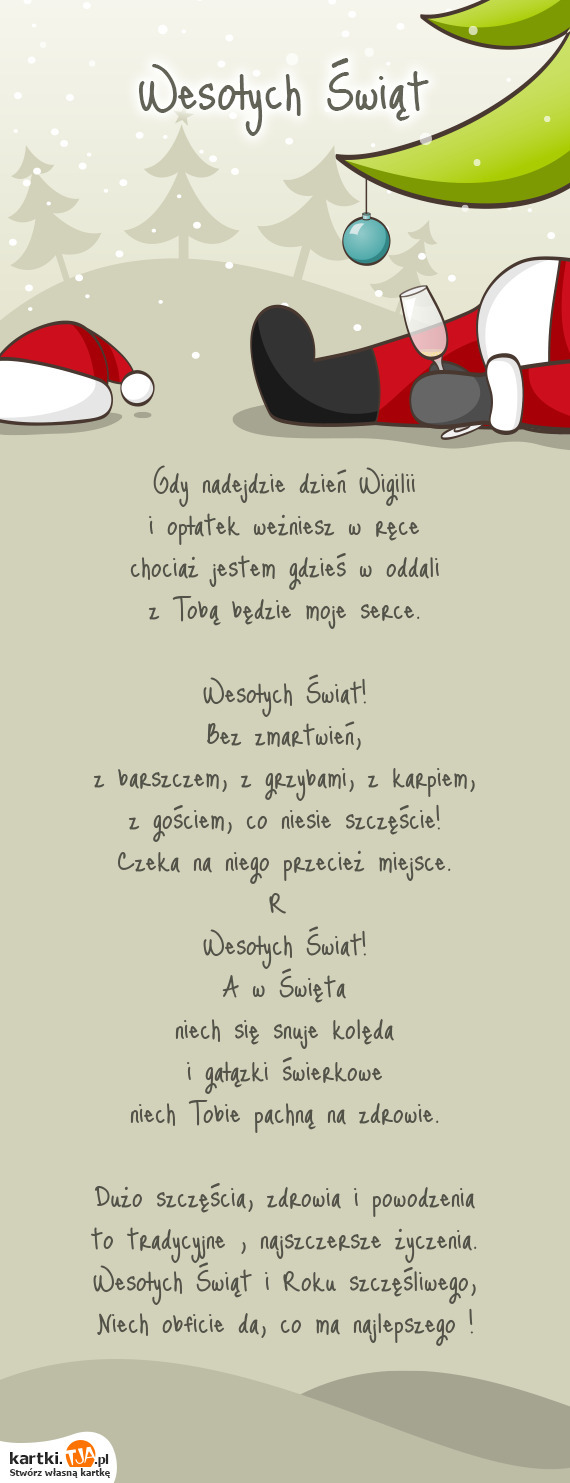 Wesołych Świąt
Gdy nadejdzie dzień Wigilii
i opłatek weźniesz w ręce
chociaż jestem gdzieś w oddali
z Tobą będzie moje serce.
Wesołych Świat!
Bez zmartwień,
z barszczem, z grzybami, z karpiem,
z gościem, co niesie szczęście!
Czeka na niego przecież miejsce.
R
Wesołych Świat!
A w Święta
niech się snuje kolęda
i gałązki świerkowe
niech Tobie pachną na zdrowie.
Dużo szczęścia, zdrowia i powodzenia
to tradycyjne , najszczersze życzenia.
Wesołych Świąt i Roku szczęśliwego,
Niech obficie da, co ma najlepszego !
kartki.TJA.pl
Stwórz własną kartkę